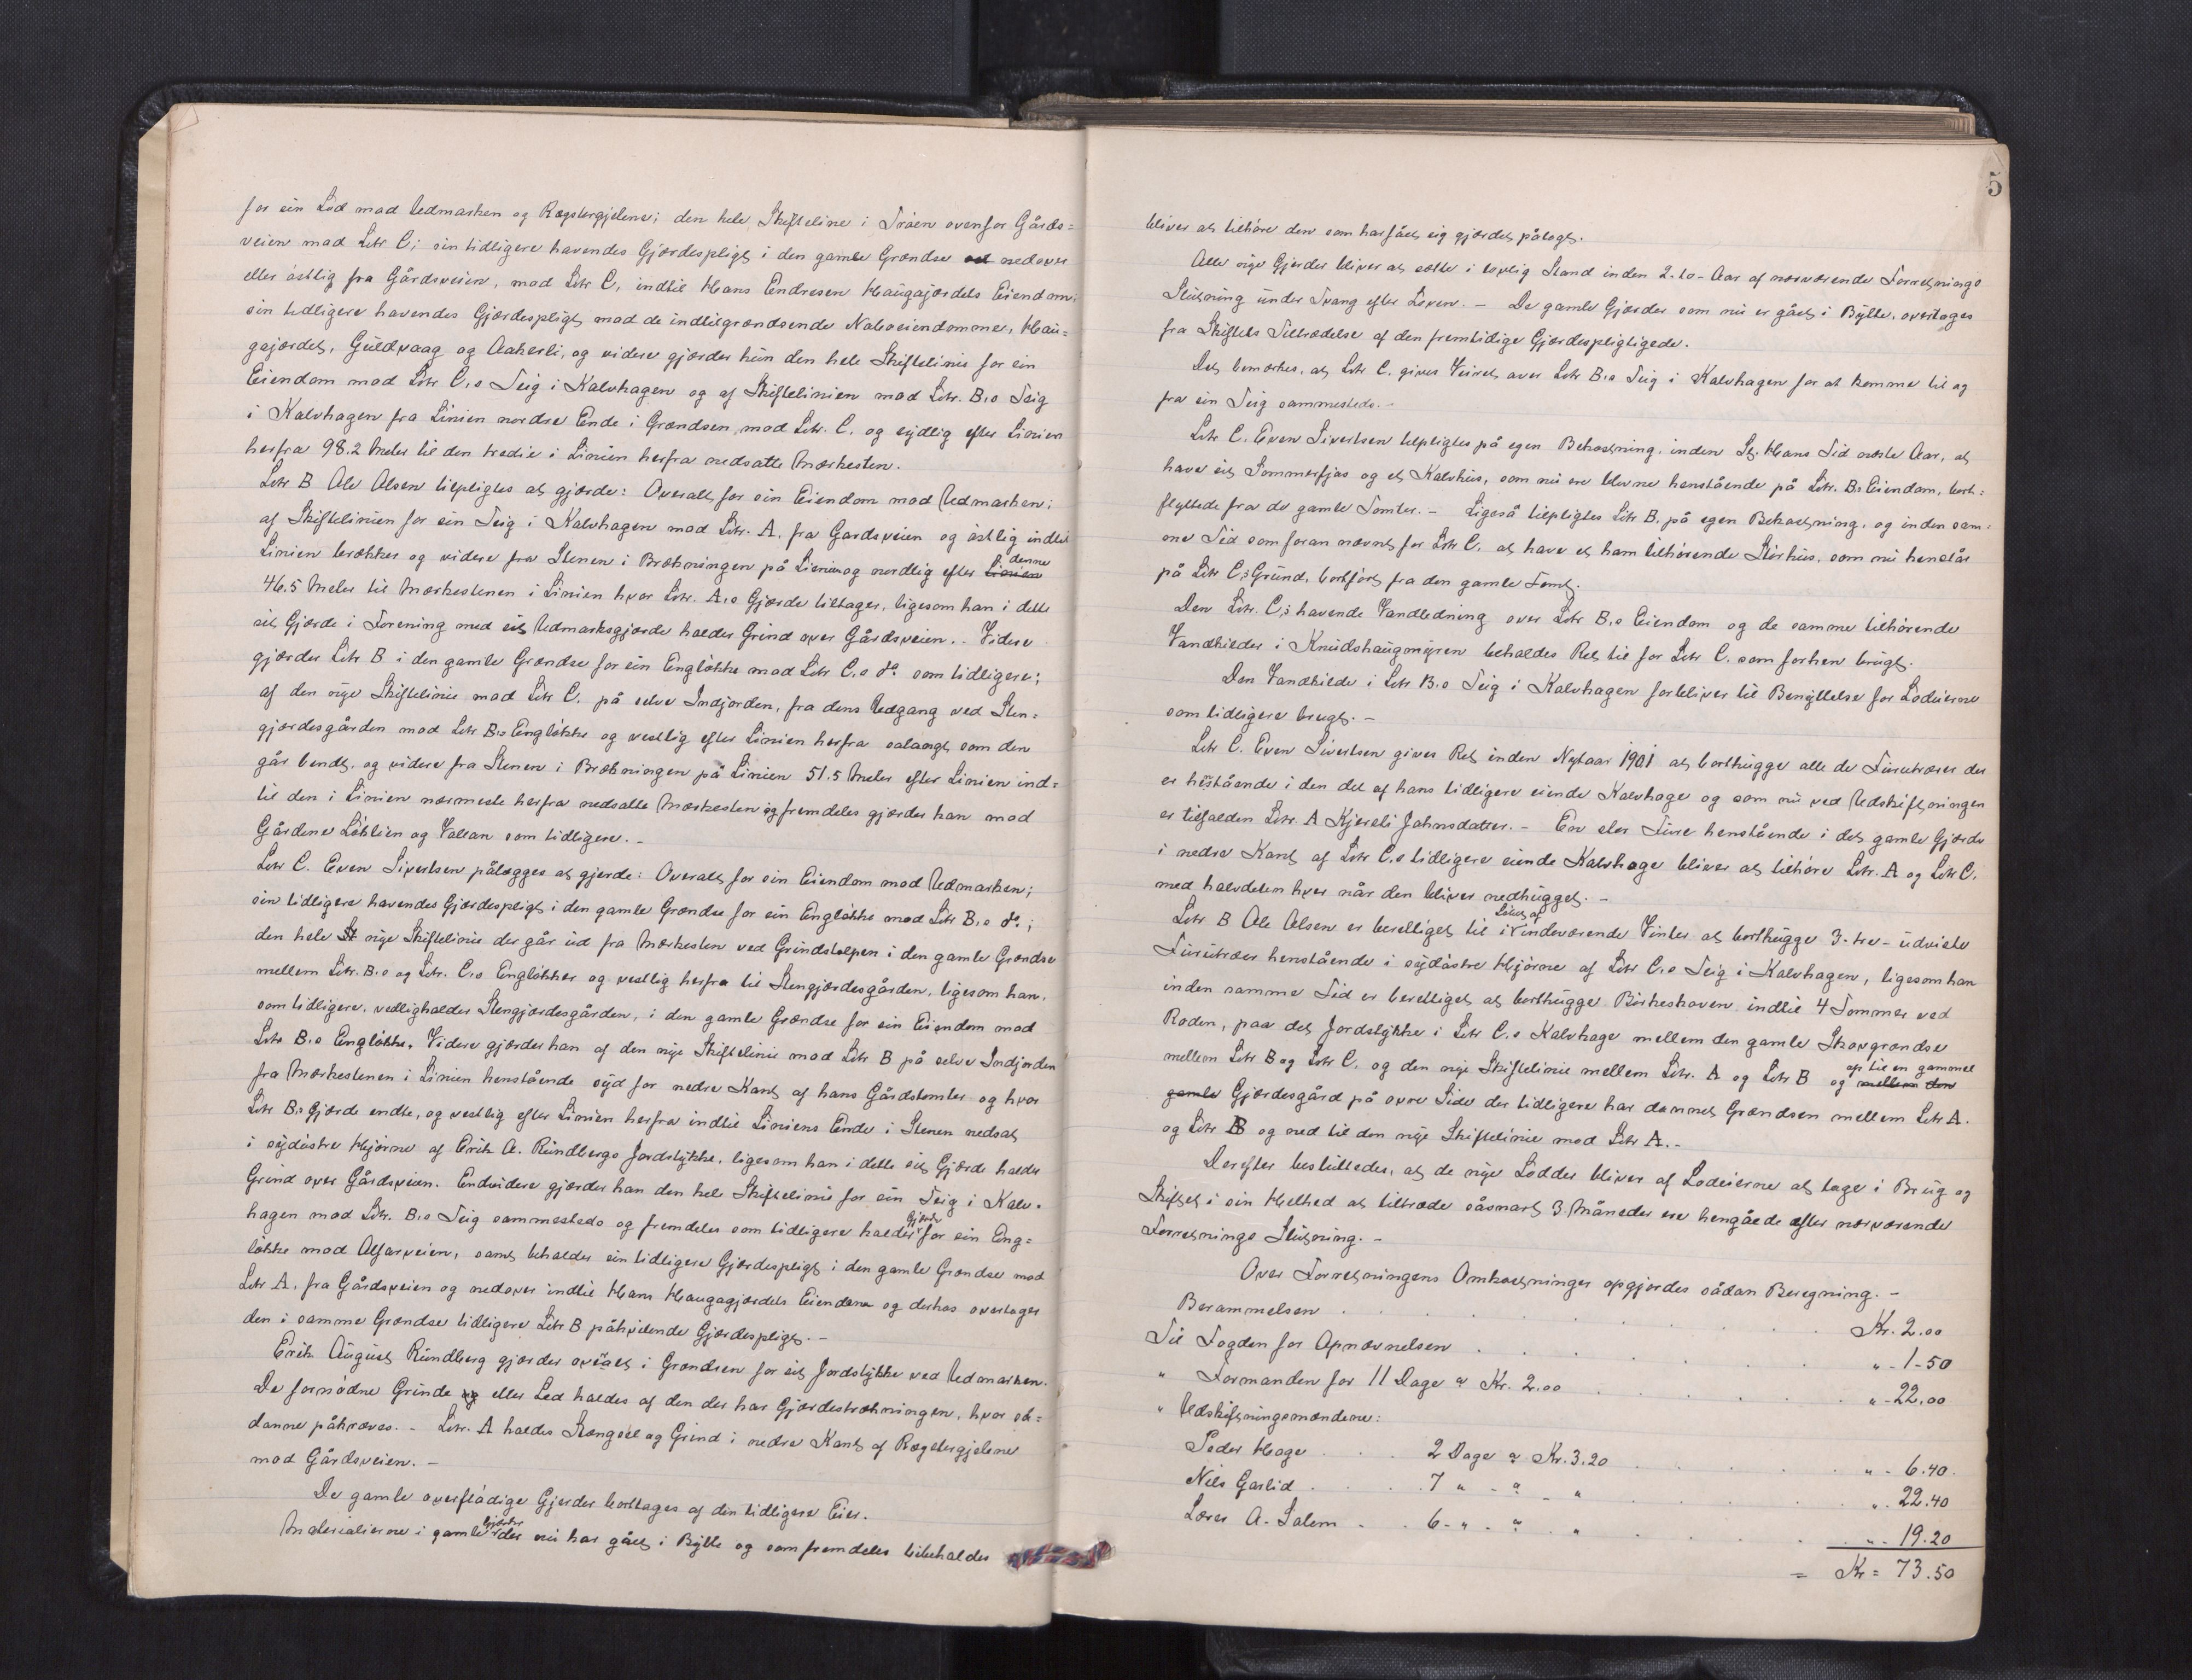 for sin Lod mod Udmarken og Røgstergjelene; den hele Skifteline i Trøen ovenfor Gårds=
veien mod Litr C; sin tidligere havendes Gjærdespligt i den gamle Grændse nedover
eller østlig fra Gårdsveien, mod Litr C, indtil Hans Endresen Haugajordets Eiendom;
sin tidligere havendes Gjærdespligt mod de indtilgrændsende Naboeiendomme, Hau=
gajordet, Guldvaag og Aakerli, og videre gjærder hun den hele Skiftelinie for sin
Eiendom mod Litr C,s Teig i Kalvhagen og af Skiftelinien mod Litr. B,s Teig
i Kalvhagen fra Linien nordre Ende i Grændsen mod Litr. C. og sydlig efter Linien
herfra 98.2 Meter til den tredie i Linien herfra nedsatte Mærkesten.
Litr B Ole Olsen tilpligtes at gjærde: Overalt for sin Eiendom mod Udmarken;
af Skiftelinien for sin Teig i Kalvhagen mod Litr. A. fra Gardsveien og østlig indtil
Linien brækker og videre fra Stenen i Brækningen på Linien og nordlig efter denne
46.5 Meter til Mærkestenen i Linien hvor Litr. A,s Gjærde tiltager, ligesom han i dette
sit Gjærde i Forening med sit Udmarksgjærde holder Grind over Gårdsveien. - Videre
gjærder Litr B i den gamle Grændse for sin Engløkke mod Litr C,s do som tidligere;
af den nye Skiftelinie mod Litr C. på selve Indjorden, fra dens Udgang ved Sten=
gjærdesgården mod Litr B,s Engløkke og vestlig efter Linien herfra salangt som den
går bendt, og videre fra Stenen i Brækningen på Linien 51.5 Meter efter Linien ind=
til den i Linien nærmeste herfra nedsatte Mærkesten og fremdeles gjærder han mod
Gårdene Løklien og Vollan som tidligere. -
Litr C. Even Sivertsen pålægges at gjerde: Overalt for sin Eiendom mod Udmarken;
sin tidligere havendes Gjærdespligt i den gamle Grændse for sin Engløkke mod Litr B,s do;
den hele nye Skiftelinie der går ud fra Mærkesten ved Grindstolpen i den gamle Grændse
mellem Litr. B,s og Litr. C,s Engløkker og vestlig herfra til Stengjærdesgården, ligesom han,
som tidligere, vedligholder Stengjærdesgården, i den gamle Grændse for sin Eiendom mod
Litr B,s Engløkke. Videre gjærder han af den nye Skiftelinie mod Litr B på selve Indjorden
fra Mærkestenen i Linien henstående syd for nedre Kant af hans Gårdstomter og hvor
Litr B,s Gjærde endte, og vestlig efter Linien herfra indtil Liniens Ende i Stenen nedsat
i sydøstre Hjørne af Erik A. Rundbergs Jordstykke, ligesom han i dette sit Gjærde holder
Grind over Gårdsveien. Endvidere gjærder han den hele Skiftelinie for sin Teig i Kalv=
hagen mod Litr. B,s Teig sammesteds og fremdeles som tidligere holder Gjærde for sin Eng=
løkke mod Alfarveien, samt beholder sin tidligere Gjærdespligt i den gamle Grændse mod
Litr A. fra Gårdsveien og nedover indtil Hans Haugagjordets Eiendom og derhos overtager
den i samme Grændse tidligere Litr B påhvilende Gjærdespligt. -
Erik August Rundberg gjærder overalt i Grændsen for sit Jordstykke ved Udmarken.
De fornødne Grinde eller Led holdes af den der har Gjærdestrækningen, hvor så=
danne påkræves. - Litr. A holder Stængsel og Grind i nedre Kant af Røgstergjelene
mod Gårdsveien. -
De gamle overflødige Gjerder borttages af den tidligere Eier.
Materialierne i gamle Gjærder der nu har gået i Bytte og som fremdeles bibeholdes
5
bliver at tilhøre den som har fået sig gjærdet pålagt.
Alle nye Gjerder bliver at sætte i lovlig Stand inden 2-to- Aar af nærværende Forretnings
Slutning under Tvang efter Loven. - De gamle Gjærder som nu er gået i Bytte, overtages
fra Skiftets Tiltrædelse af den fremtidige Gjærdespligtigede.
Det bemærkes, at Litr C. gives Veiret over Litr B,s Teig i Kalvhagen for at komme til og
fra sin Teig sammesteds. -
Litr C. Even Sivertsen tilpligtes på egen Bekostning, inden St. Hans Tid næste Aar, at
have sit Sommerfjøs og et Kalvhus, som nu ere blevne henstående på Litr. B,s Eiendom, bort=
flyttede fra de gamle Tomter. - Ligeså tilpligtes Litr B. på egen Bekostning, og inden sam=
me Tid som foran nævnt for Litr C. at have et ham tilhørende Størhus, som nu henstår
på Litr C,s Grund, bortført fra den gamle Tomt.
Den Litr. C,s havende Vandledning over Litr B,s Eiendom og de samme tilhørende
Vandkilder i Knudshaugmyren beholdes Ret til for Litr C. som forhen brugt.
Den Vandkilde i Litr B,s Teig i Kalvhagen forbliver til Benyttelse for Lodeierne
som tidligere brugt. -
Litr C. Even Sivertsen gives Ret inden Nytaar 1901 at borthugge alle de Furutræer der
er henstående i den del af hans tidligere eiende Kalvhage og som nu ved Udskiftningen
er tilfalden Litr. A Kjersti Johnsdatter. - En stor Furu henstående i det gamle Gjærde
i nedre Kant af Litr C,s tidligere eiende Kalvhage bliver at tilhøre Litr. A og Litr C.
med halvdelen hver når den bliver nedhugget. -
Litr B Ole Olsen er berettiget til i Løbet af indeværende Vinter at borthugge 3-tre- udviste
Furutræer henstående i sydøstre Hjørne af Litr C,s Teig i Kalvhagen, ligesom han
inden samme Tid er berettiget at borthugge Birkeskoven indtil 4 Tommer ved
Roden, paa det Jordstykke i Litr C,s Kalvhage mellem den gamle Skovgrændse
mellem Litr B og Litr C. og den nye Skiftelinie mellem Litr. A og Litr B og op til en gammel
Gjærdesgård på øvre Side der tidligere har dannet Grændsen mellem Litr A.
og Litr B og ned til den nye Skiftelinie mod Litr A. -
Derefter besluttedes, at de nye Lodder bliver af Lodeierne at tage i Brug og
Skiftet i sin Helhed at tiltræde såsnart 3 Måneder ere hengåede efter nærværende
Forretnings Slutning. -
Over Forretningens Omkostninger opgjordes sådan Beregning. -
Berammelsen . . . Kr. 2.00
Til Fogden for Opnævnelsen . . . " - 1-50
" Formanden for 11 Dage a Kr. 2.00 . . . " - 22.00
" Udskiftningsmændene:
Peder Hage . . 2 Dage a Kr. 3.20 . . . " - 6.40.
Nils Garlid . . . 7 " - a - " . . . " - 22.40
Lars A. Salem . . 6 - " - a - " . . . " - 19.20
= Kr = 73.50